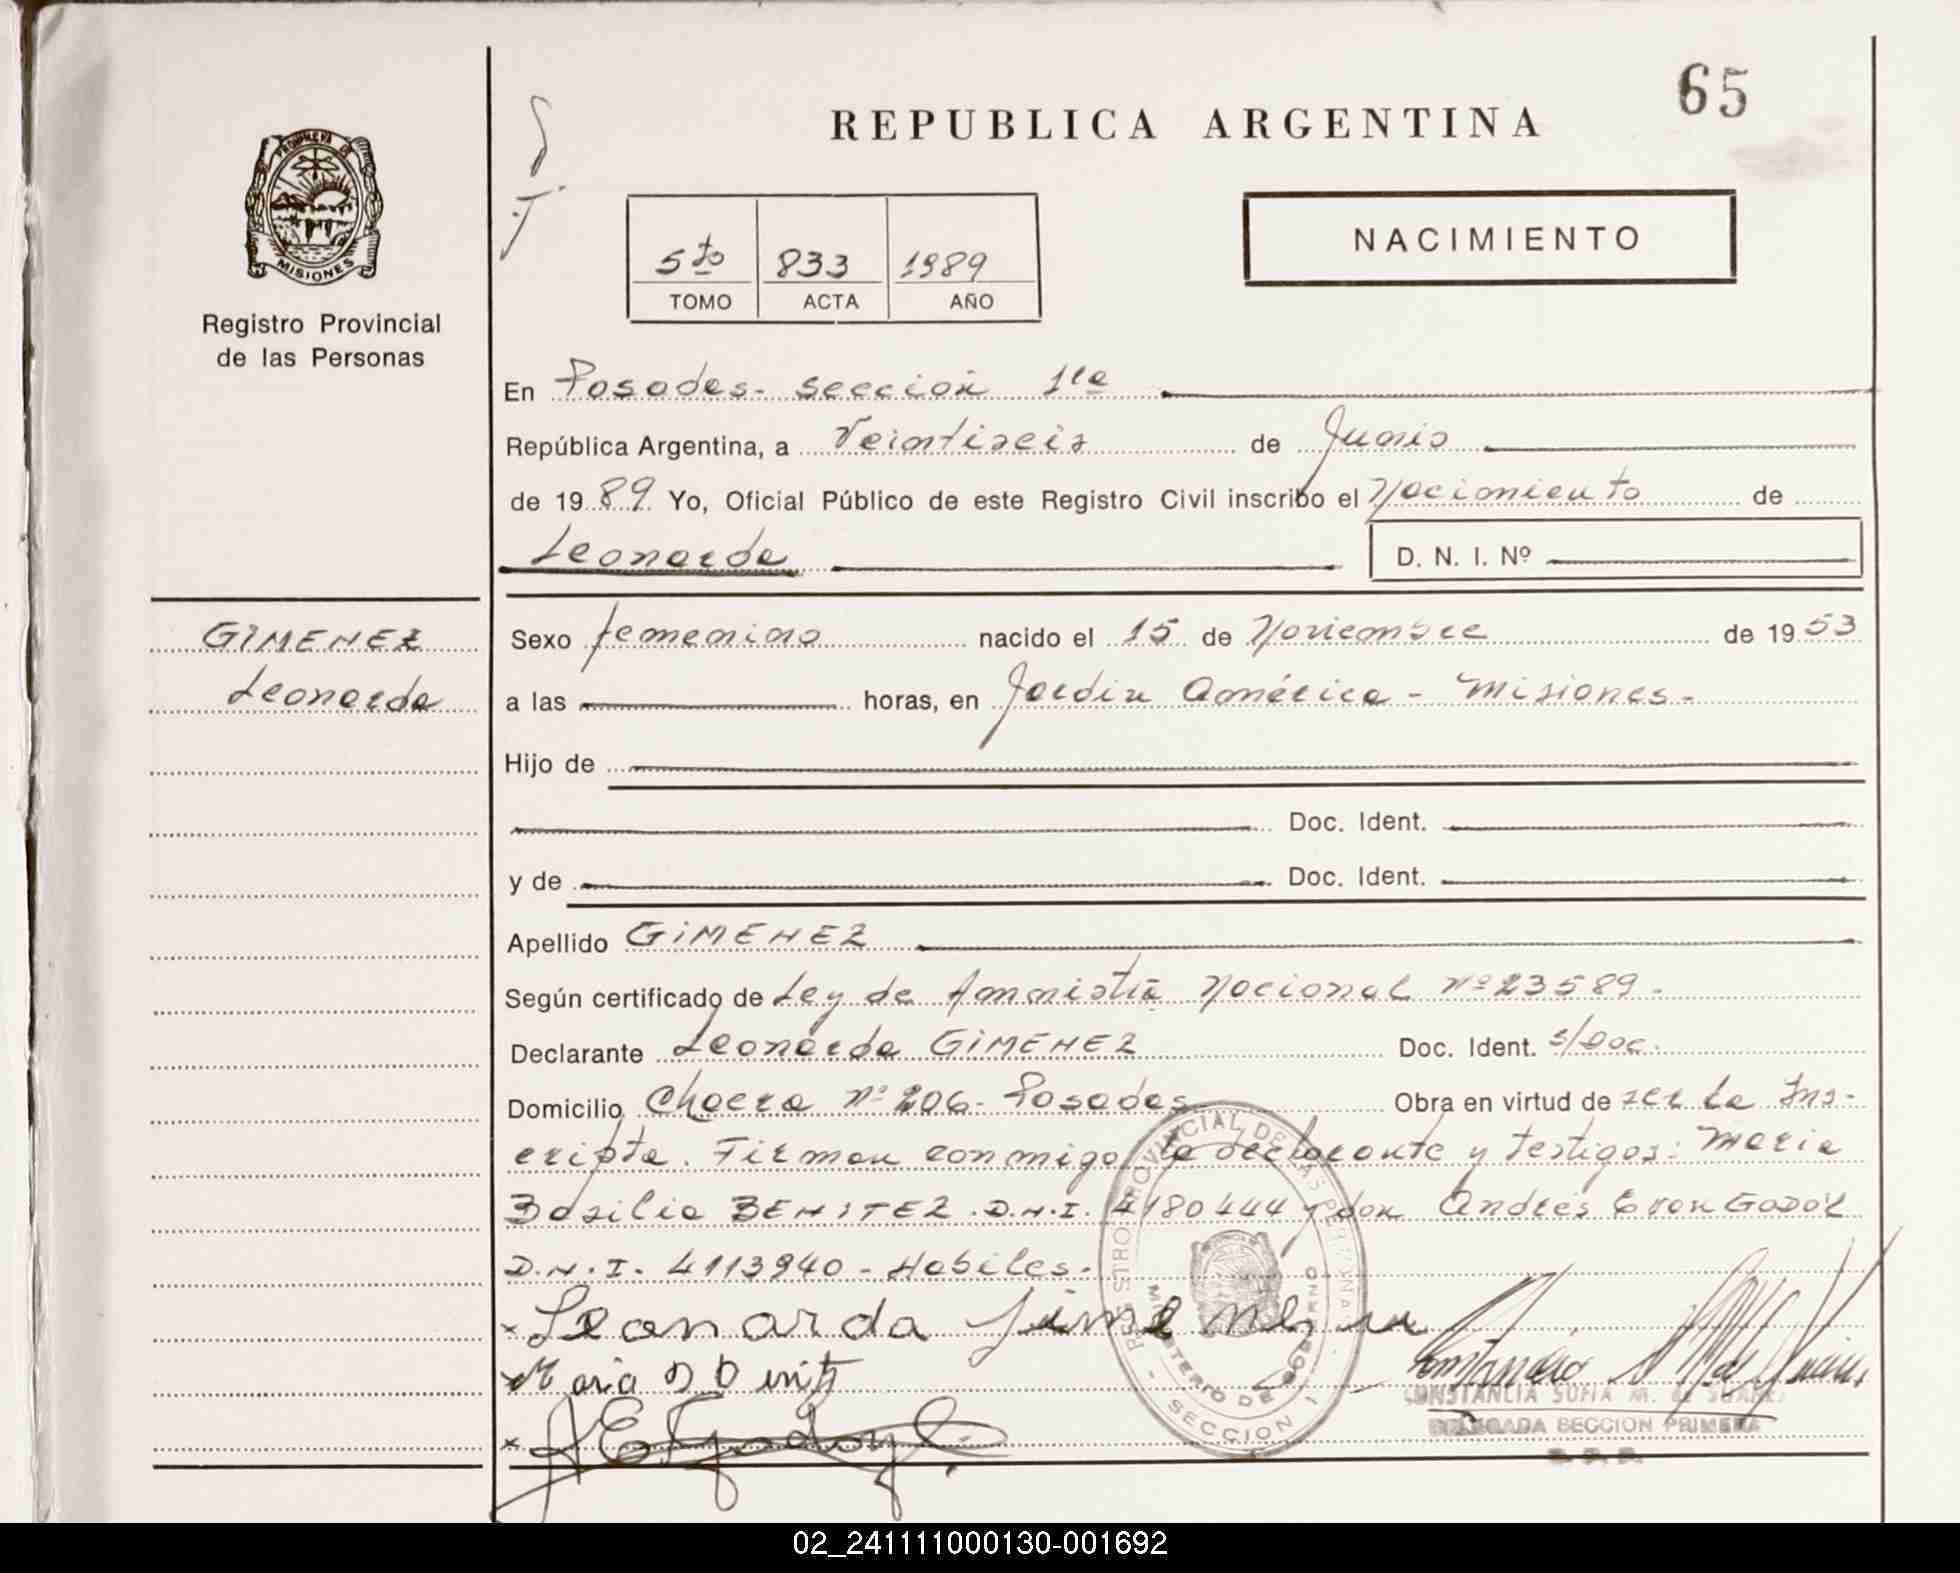 65
REPUBLICA ARGENTINA
PROVINCIA DE
MISIONES
Registro Provincial
de las Personas
NACIMIENTO
5to 833 1989
TOMO ACTA AÑO
En Posadas - sección 1ra
República Argentina, a Veintiseis de Junio
de 1989 Yo, Oficial Público de este Registro Civil inscribo el Nacimiento de
Leonarda D. N. I. Nº
GIMENEZ
Leonarda
Sexo femenino nacido el 15 de Noviembre de 1953
a las horas, en Jardin América - Misiones -
Hijo de
Doc. Ident.
y de Doc. Ident.
Apellido GIMENEZ
Según certificado de Ley de Amnistia Nacional Nº 23589 -
Declarante Leonarda GIMENEZ Doc. Ident. s/Doc.
Domicilio Chacra Nº 206 - Posadas Obra en virtud de ser la Ins-
cripta. Firman conmigo la declarante y testigos: Maria
Basilia BENITEZ D.N.I. 4180444 y don Andrés Evon GODOY
D.N.I. 4113940 - Habiles -
x Leonarda Jimenez
x Maria B Benitz
x A E Godoy
REGISTRO PROVINCIAL DE LAS PERSONAS
MINISTERIO DE GOBIERNO
- SECCION I -
CONSTANCIA SOFIA M. de
DELEGADA SECCION PRIMERA
R. P. P.
02_241111000130-001692